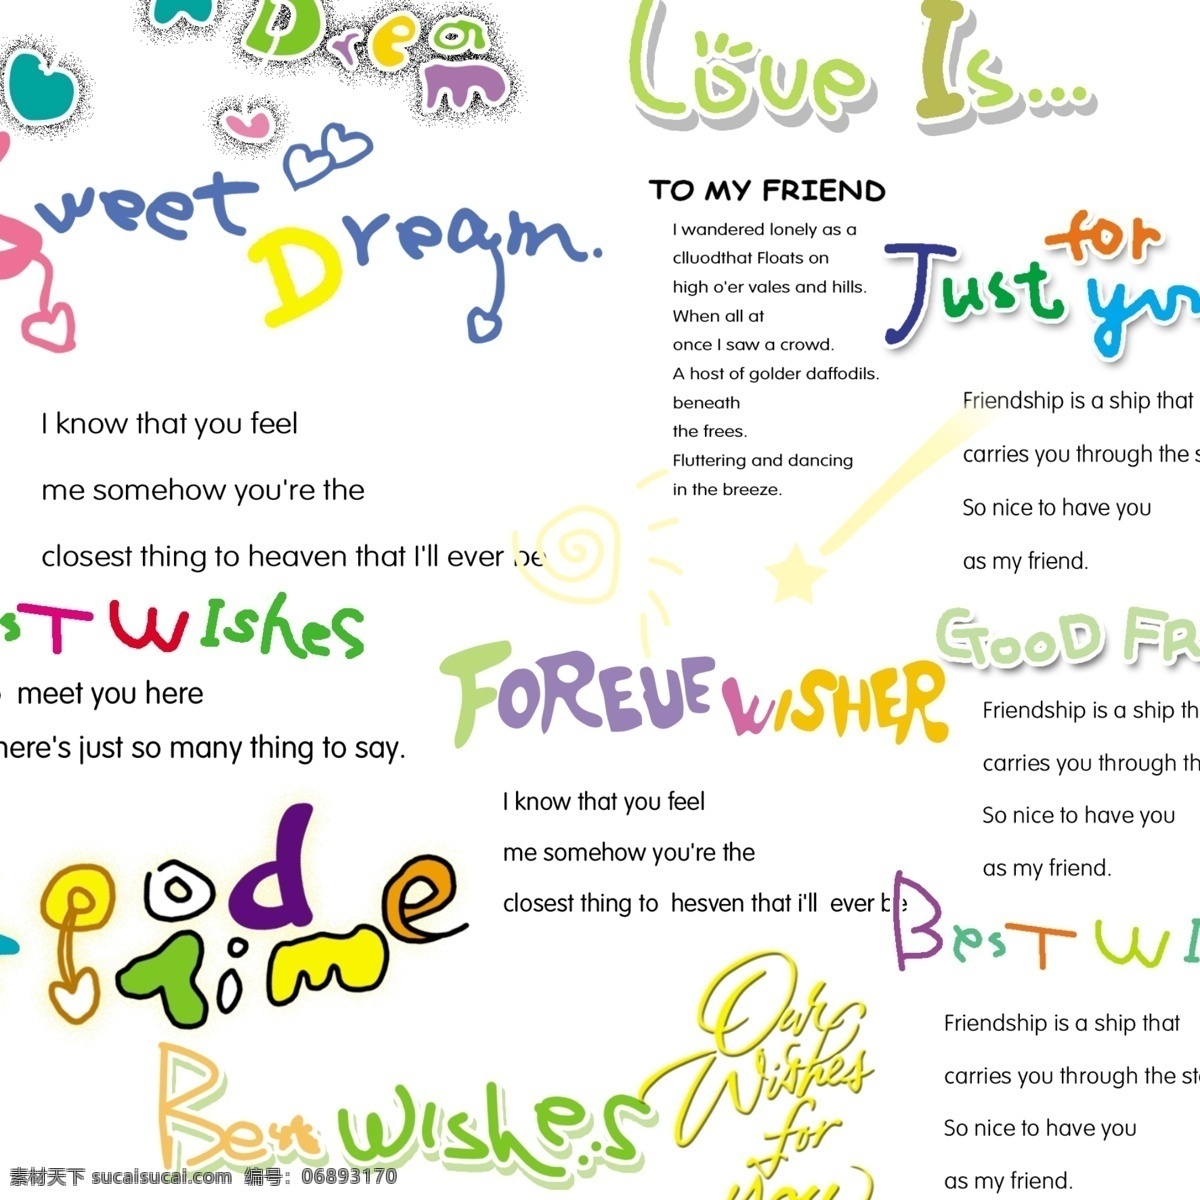 Dream
Love Is...
Sweet Dream.
TO MY FRIEND
I wandered lonely as a
clluodthat Floats on
high o'er vales and hills.
When all at
once I saw a crowd.
A host of golder daffodils.
beneath
the frees.
Fluttering and dancing
in the breeze.
Just for you
Friendship is a ship that
carries you through the s
So nice to have you
as my friend.
I know that you feel
me somehow you're the
closest thing to heaven that I'll ever be
sT WIshes
meet you here
here's just so many thing to say.
FOREUE WISHER
I know that you feel
me somehow you're the
closest thing to hesven that i'll ever be
GOOD FR
Friendship is a ship th
carries you through th
So nice to have you
as my friend.
good
time
BesT WI
Friendship is a ship that
carries you through the st
So nice to have you
as my friend.
Our
Wishes
for
you
Best wishes
素材天下 sucaisucai.com 编号：06893170